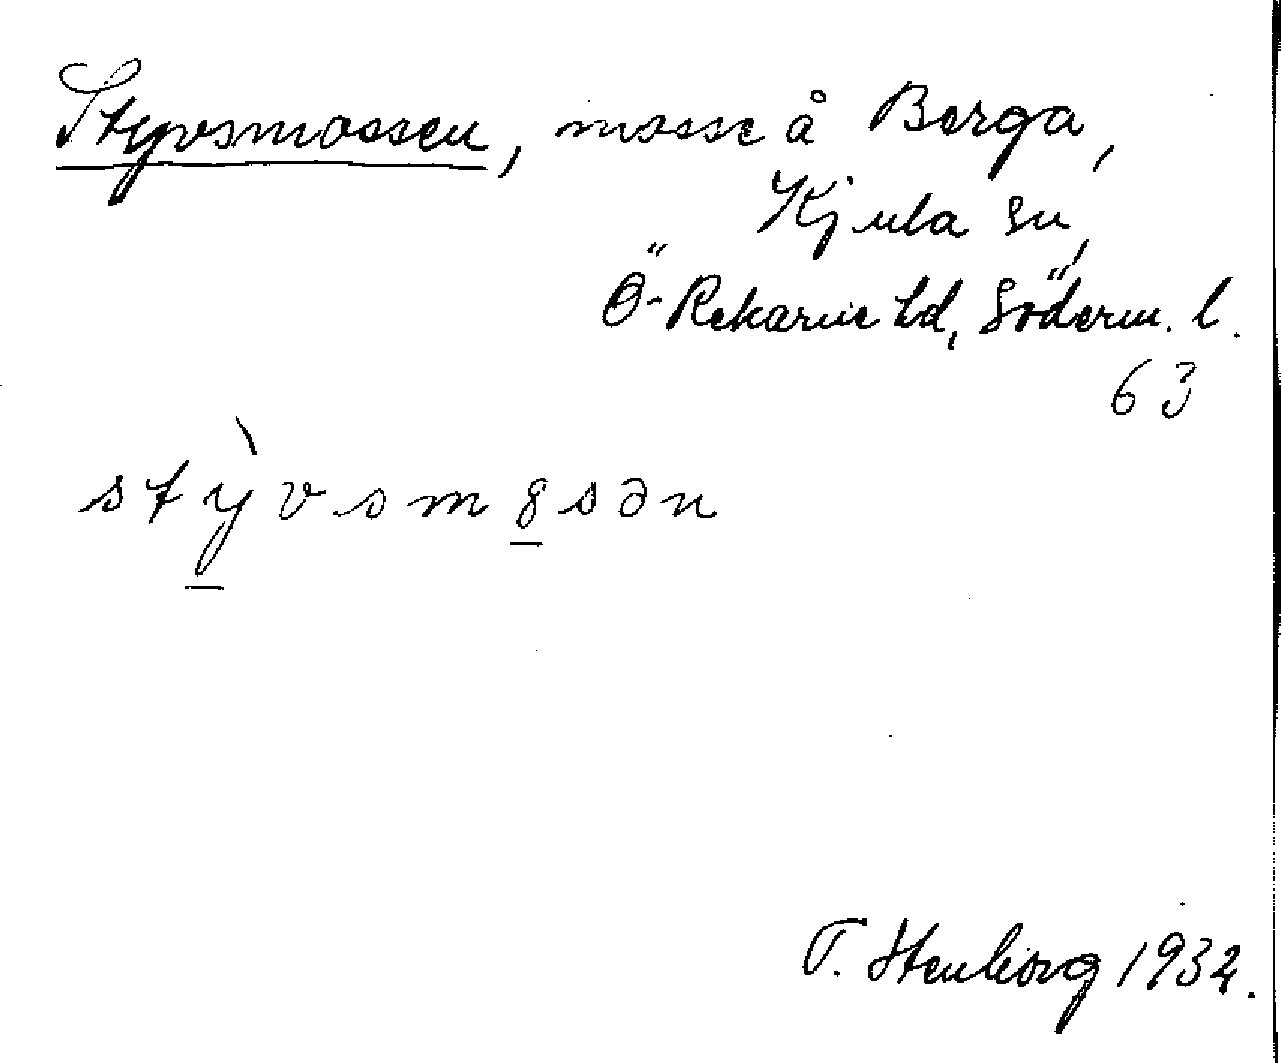 Styvsmossen, mosse å Berga,
Kjula sn,
Ö-Rekarne hd, Söderm. l.
63
stỳ̠vsm8̠sən
T. Stenborg 1932.